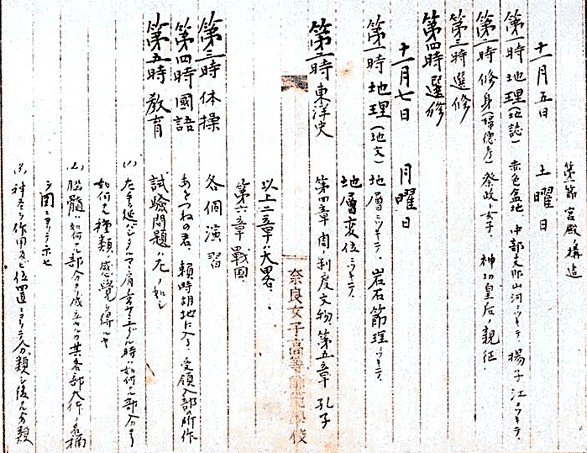 第一節 宮殿ノ構造
十一月五日 土曜日
第一時 地理(地誌) 赤色盆地 中部支那山河ニツキテ 揚子江ニツキテ
第二時 修身(婦徳) 祭政ト女子 神功皇后ノ親征
第三時 選修
第四時 選修
十一月七日 月曜日
第一時 地理(地文) 地層ニツキテ 岩石節理ニツキテ
地層変位ニツキテ
第二時 東洋史 第四章 周ノ制度文物 第五章 孔子
以上二五章ノ大畧
第六章 戰國
奈良女子高等師範學校
第三時 体操 各個演習
第四時 國語 あきつねの君 頼時胡地に入る 受領
第五時 教育 試驗問題ハ左ノ如シ
(1)
如何ナル種類ノ感覺ヲ得ルヤ
(2) 脳髓ハ如何ナル部分ヨリ成立スルカ 其各部ノ名稱
ヲ圖ニヨリテ示セ
(3) 神経ヲ作用及ビ位置ニヨリテ分類シ